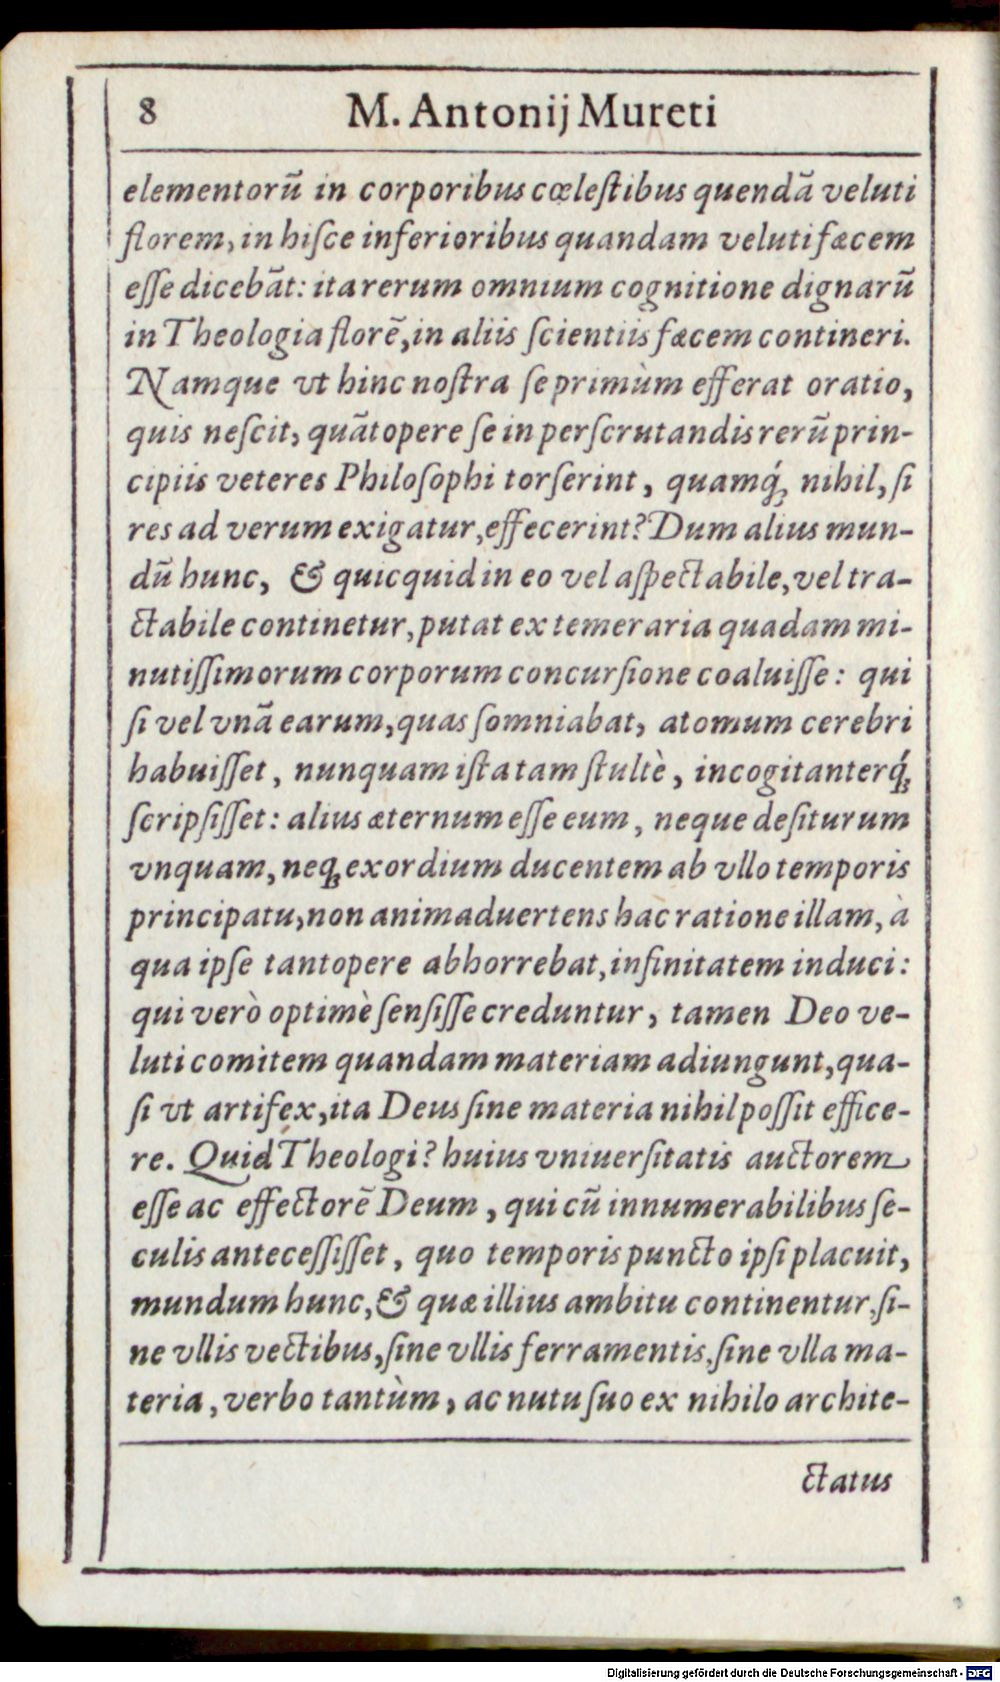 8 M. Antonij Mureti
elementorū in corporibus cœleſtibus quendā veluti
florem, in hiſce inferioribus quandam veluti fæcem
eſſe dicebāt: ita rerum omnium cognitione dignarū
in Theologia florē, in aliis ſcientiis fæcem contineri.
Namque vt hinc noſtra ſe primùm efferat oratio,
quis neſcit, quātopere ſe in perſcrutandis rerū prin-
cipiis veteres Philoſophi torſerint, quamq́; nihil, ſi
res ad verum exigatur, effecerint? Dum alius mun-
dū hunc, & quicquid in eo vel aſpectabile, vel tra-
ctabile continetur, putat ex temeraria quadam mi-
nutiſſimorum corporum concurſione coaluiſſe: qui
ſi vel vnā earum, quas ſomniabat, atomum cerebri
habuiſſet, nunquam iſta tam ſtultè, incogitanterq́;
ſcripſiſſet: alius æternum eſſe eum, neque deſiturum
vnquam, neq; exordium ducentem ab vllo temporis
principatu, non animaduertens hac ratione illam, à
qua ipſe tantopere abhorrebat, infinitatem induci:
qui verò optimè ſenſiſſe creduntur, tamen Deo ve-
luti comitem quandam materiam adiungunt, qua-
ſi vt artifex, ita Deus ſine materia nihil poſſit effice-
re. Quid Theologi? huius vniuerſitatis auctorem
eſſe ac effectorē Deum, qui cū innumerabilibus ſe-
culis anteceſſiſſet, quo temporis puncto ipſi placuit,
mundum hunc, & quæ illius ambitu continentur, ſi-
ne vllis vectibus, ſine vllis ferramentis, ſine vlla ma-
teria, verbo tantùm, ac nutu ſuo ex nihilo archite-
ctatus
Digitalisierung gefördert durch die Deutsche Forschungsgemeinschaft - DFG